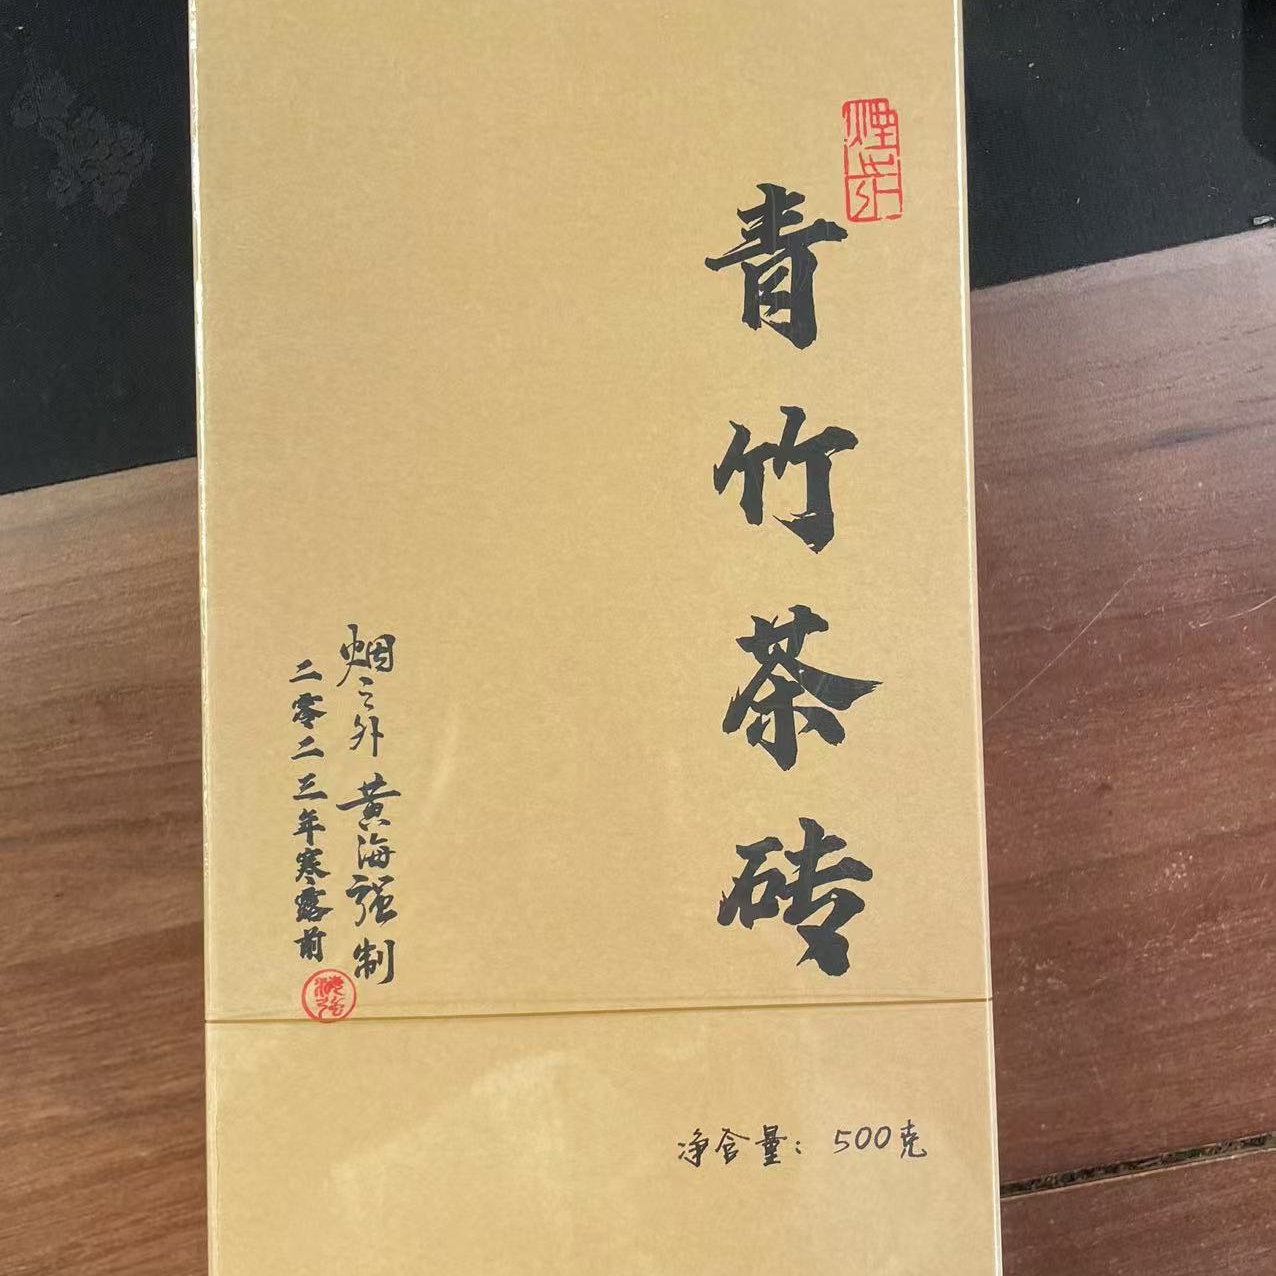 烟之外
青竹茶砖
烟之外 黄海强制
二零二三年寒露前
海强
净含量：500克